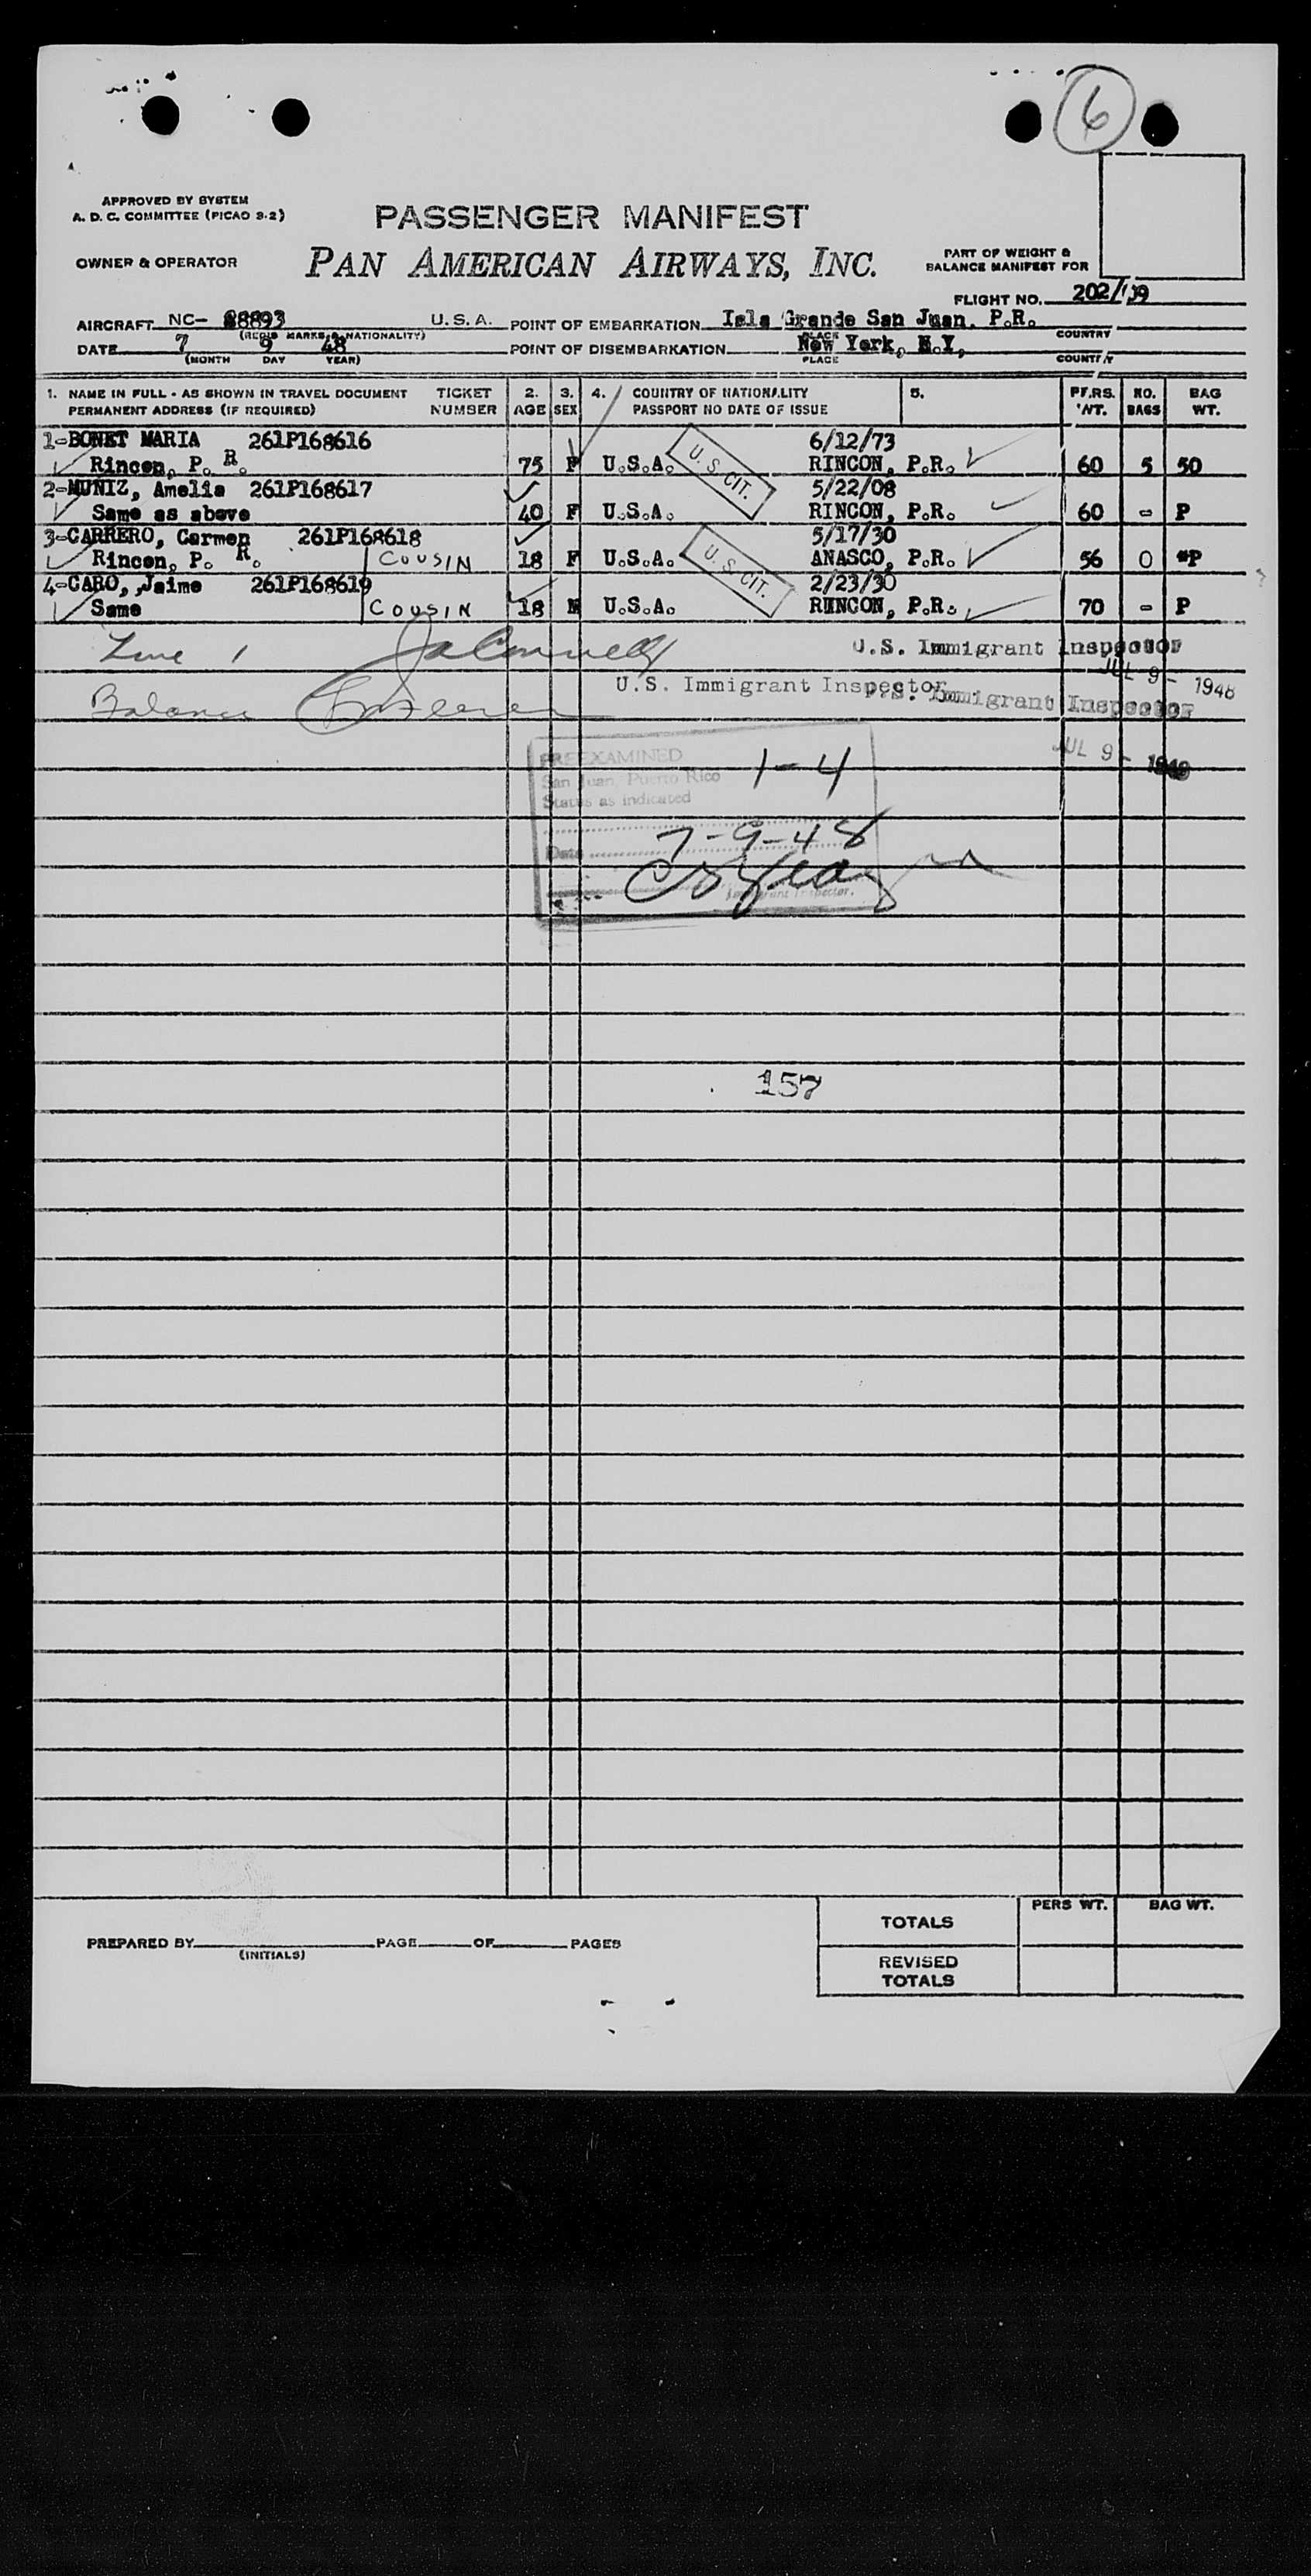 6
APPROVED BY SYSTEM
A. D. C. COMMITTEE (PICAO 9-2)
PASSENGER MANIFEST
OWNER & OPERATOR
PAN AMERICAN AIRWAYS, INC.
PART OF WEIGHT &
BALANCE MANIFEST FOR
FLIGHT NO. 202/
AIRCRAFT NC- 88893 U.S.A. POINT OF EMBARKATION Isla Grande San Juan, P.R.
(REGIS MARKS & NATIONALITY) PLACE COUNTRY
DATE 7 9 48 POINT OF DISEMBARKATION New York, N.Y.
(MONTH DAY YEAR) PLACE COUNTRY
1. NAME IN FULL - AS SHOWN IN TRAVEL DOCUMENT TICKET 2. 3. 4. COUNTRY OF NATIONALITY 5. PERS. NO. BAG
PERMANENT ADDRESS (IF REQUIRED) NUMBER AGE SEX PASSPORT NO DATE OF ISSUE WT. BAGS WT.
1-BONET MARIA 261P168616 6/12/73
Rincon, P. R. 75 F U.S.A. U. S. CIT. RINCON, P.R. 60 5 50
2-MUNIZ, Amelia 261P168617 5/22/08
Same as above 40 F U.S.A. RINCON, P.R. 60 - P
3-CARRERO, Carmen 261P168618 5/17/30
Rincon, P. R. COUSIN 18 F U.S.A. U. S. CIT. ANASCO, P.R. 56 0 P
4-CARO, Jaime 261P168619 2/23/30
Same COUSIN 18 M U.S.A. RINCON, P.R. 70 - P
Line 1 U.S. Immigrant Inspector
JUL 9 - 1948
Balance U.S. Immigrant Inspector U.S. Immigrant Inspector
JUL 9 - 1948
PREEXAMINED
San Juan, Puerto Rico 1-4
Status as indicated
Date 7-9-48
Immigrant Inspector.
157
TOTALS PERS WT. BAG WT.
PREPARED BY PAGE OF PAGES
(INITIALS)
REVISED
TOTALS